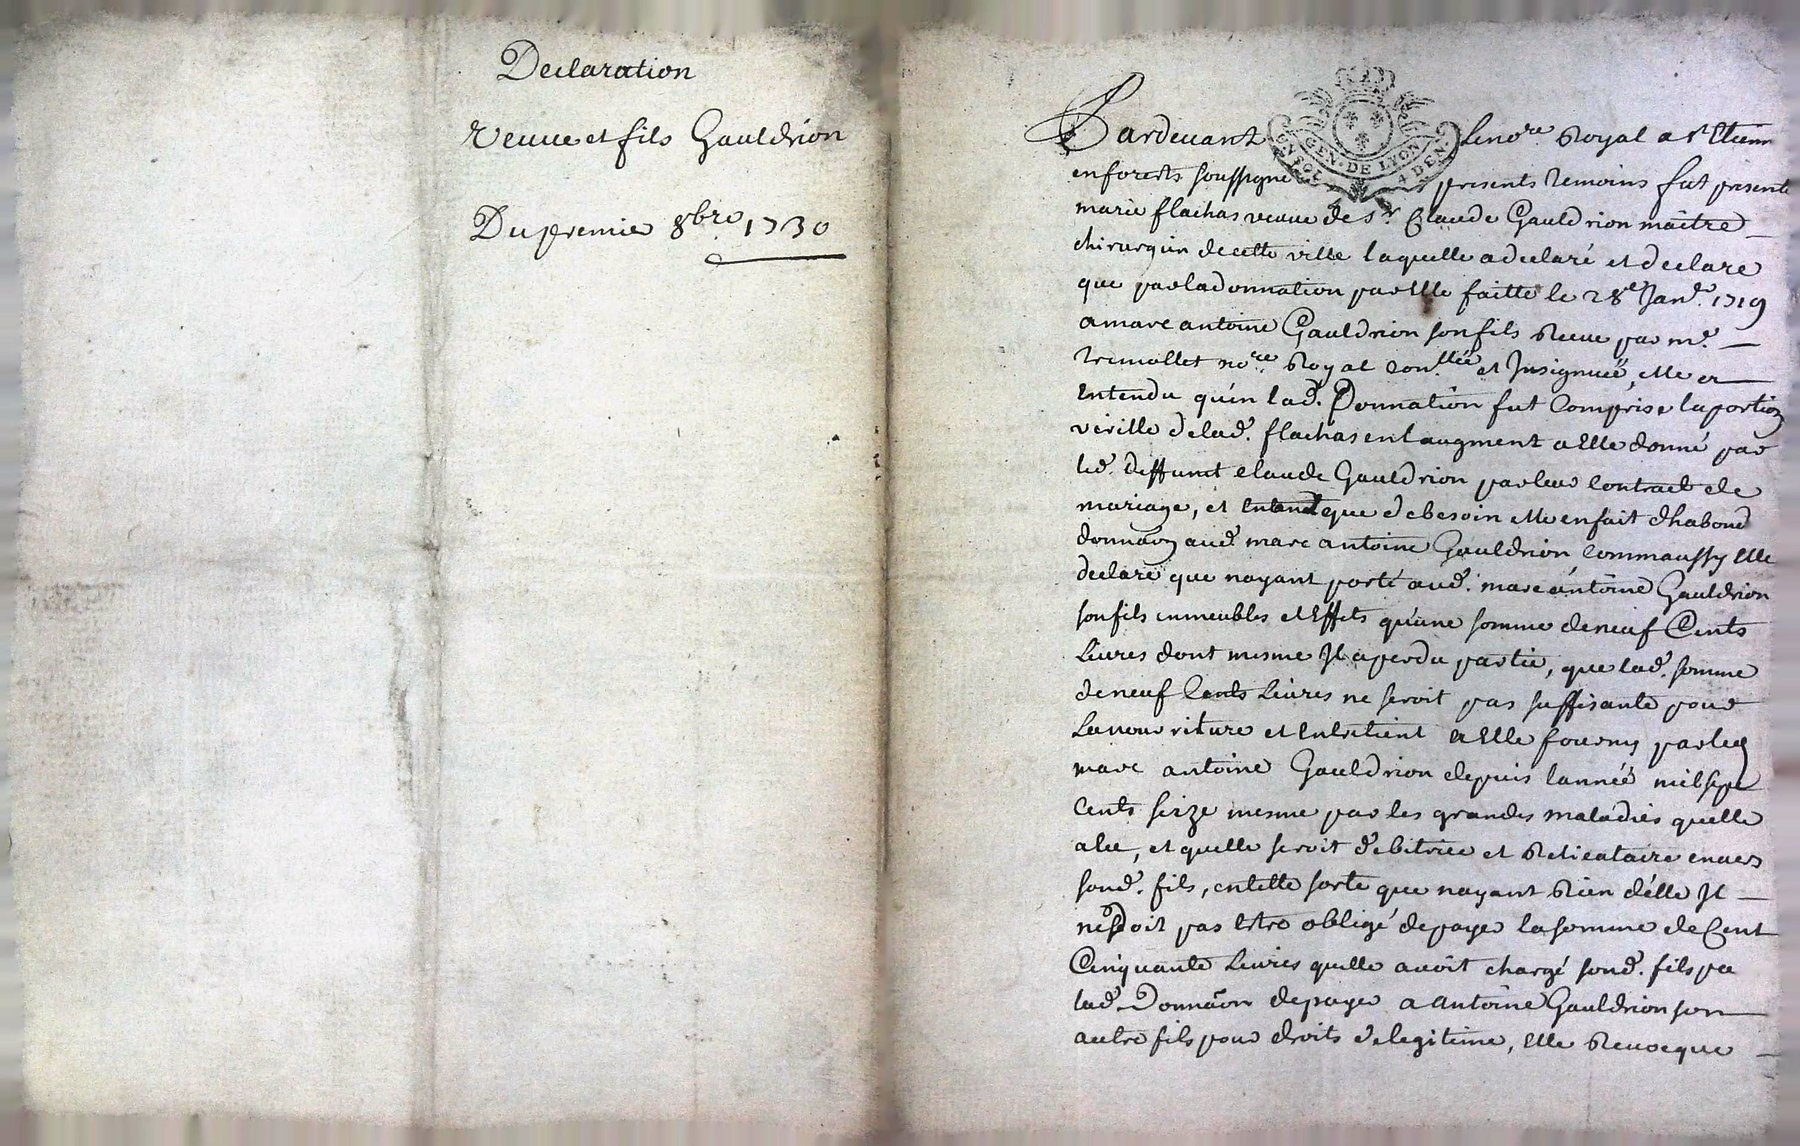 Declaration
veuve et fils Gauldrion
Du premier 8bre 1730
Pardevant Le nore Royal a St Etienne
en forests soussigne presents temoins fut presente
marie flachas veuve de Sr Claude Gauldrion maitre
chirurgien de cette ville laquelle a declaré et declare
que par la donnation par Elle faitte le 28e Janr 1719
a marc antoine Gauldrion son fils Receue par me
tremollet nore Royal Controllée et Insignuée, elle a
Entendu qu'en lad. Donnation fut Comprise la portion
virille de lad. flachas en l'augment a Elle donné par
led. deffunct claude Gauldrion par leur contract de
mariage, et que de besoin elle en fait d'habond
donnaon aud. marc antoine Gauldrion Comm aussy Elle
declare que nayant porté aud. marc antoine Gauldrion
son fils en meubles et Effets qu'une somme de neuf Cents
Livres dont mesme Il a perdu partie, que lad. somme
de neuf Cents Livres ne seroit pas suffisante pour
La nourriture et Entretient a Elle fourny par led
marc antoine Gauldrion depuis lannéé mil sept
Cents seize mesme par les grandes maladies quelle
a eu, et quelle seroit debitrice et Relicataire envers
sond. fils, en telle sorte que nayant Rien d'elle Il
ne doit pas Estre obligé de payer la somme de Cent
Cinquante Livres quelle avoit chargé sond. fils pa
lad. Donnaon de payer a antoine Gauldrion son
autre fils pour droits de legitime, Elle Revocque
GEN. DE LYON
4 DEN.